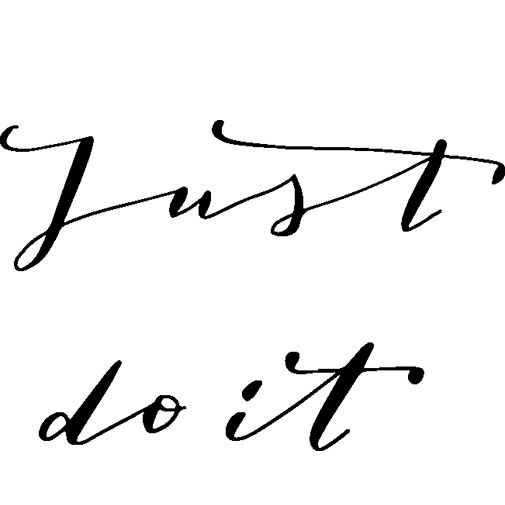 Just
do it